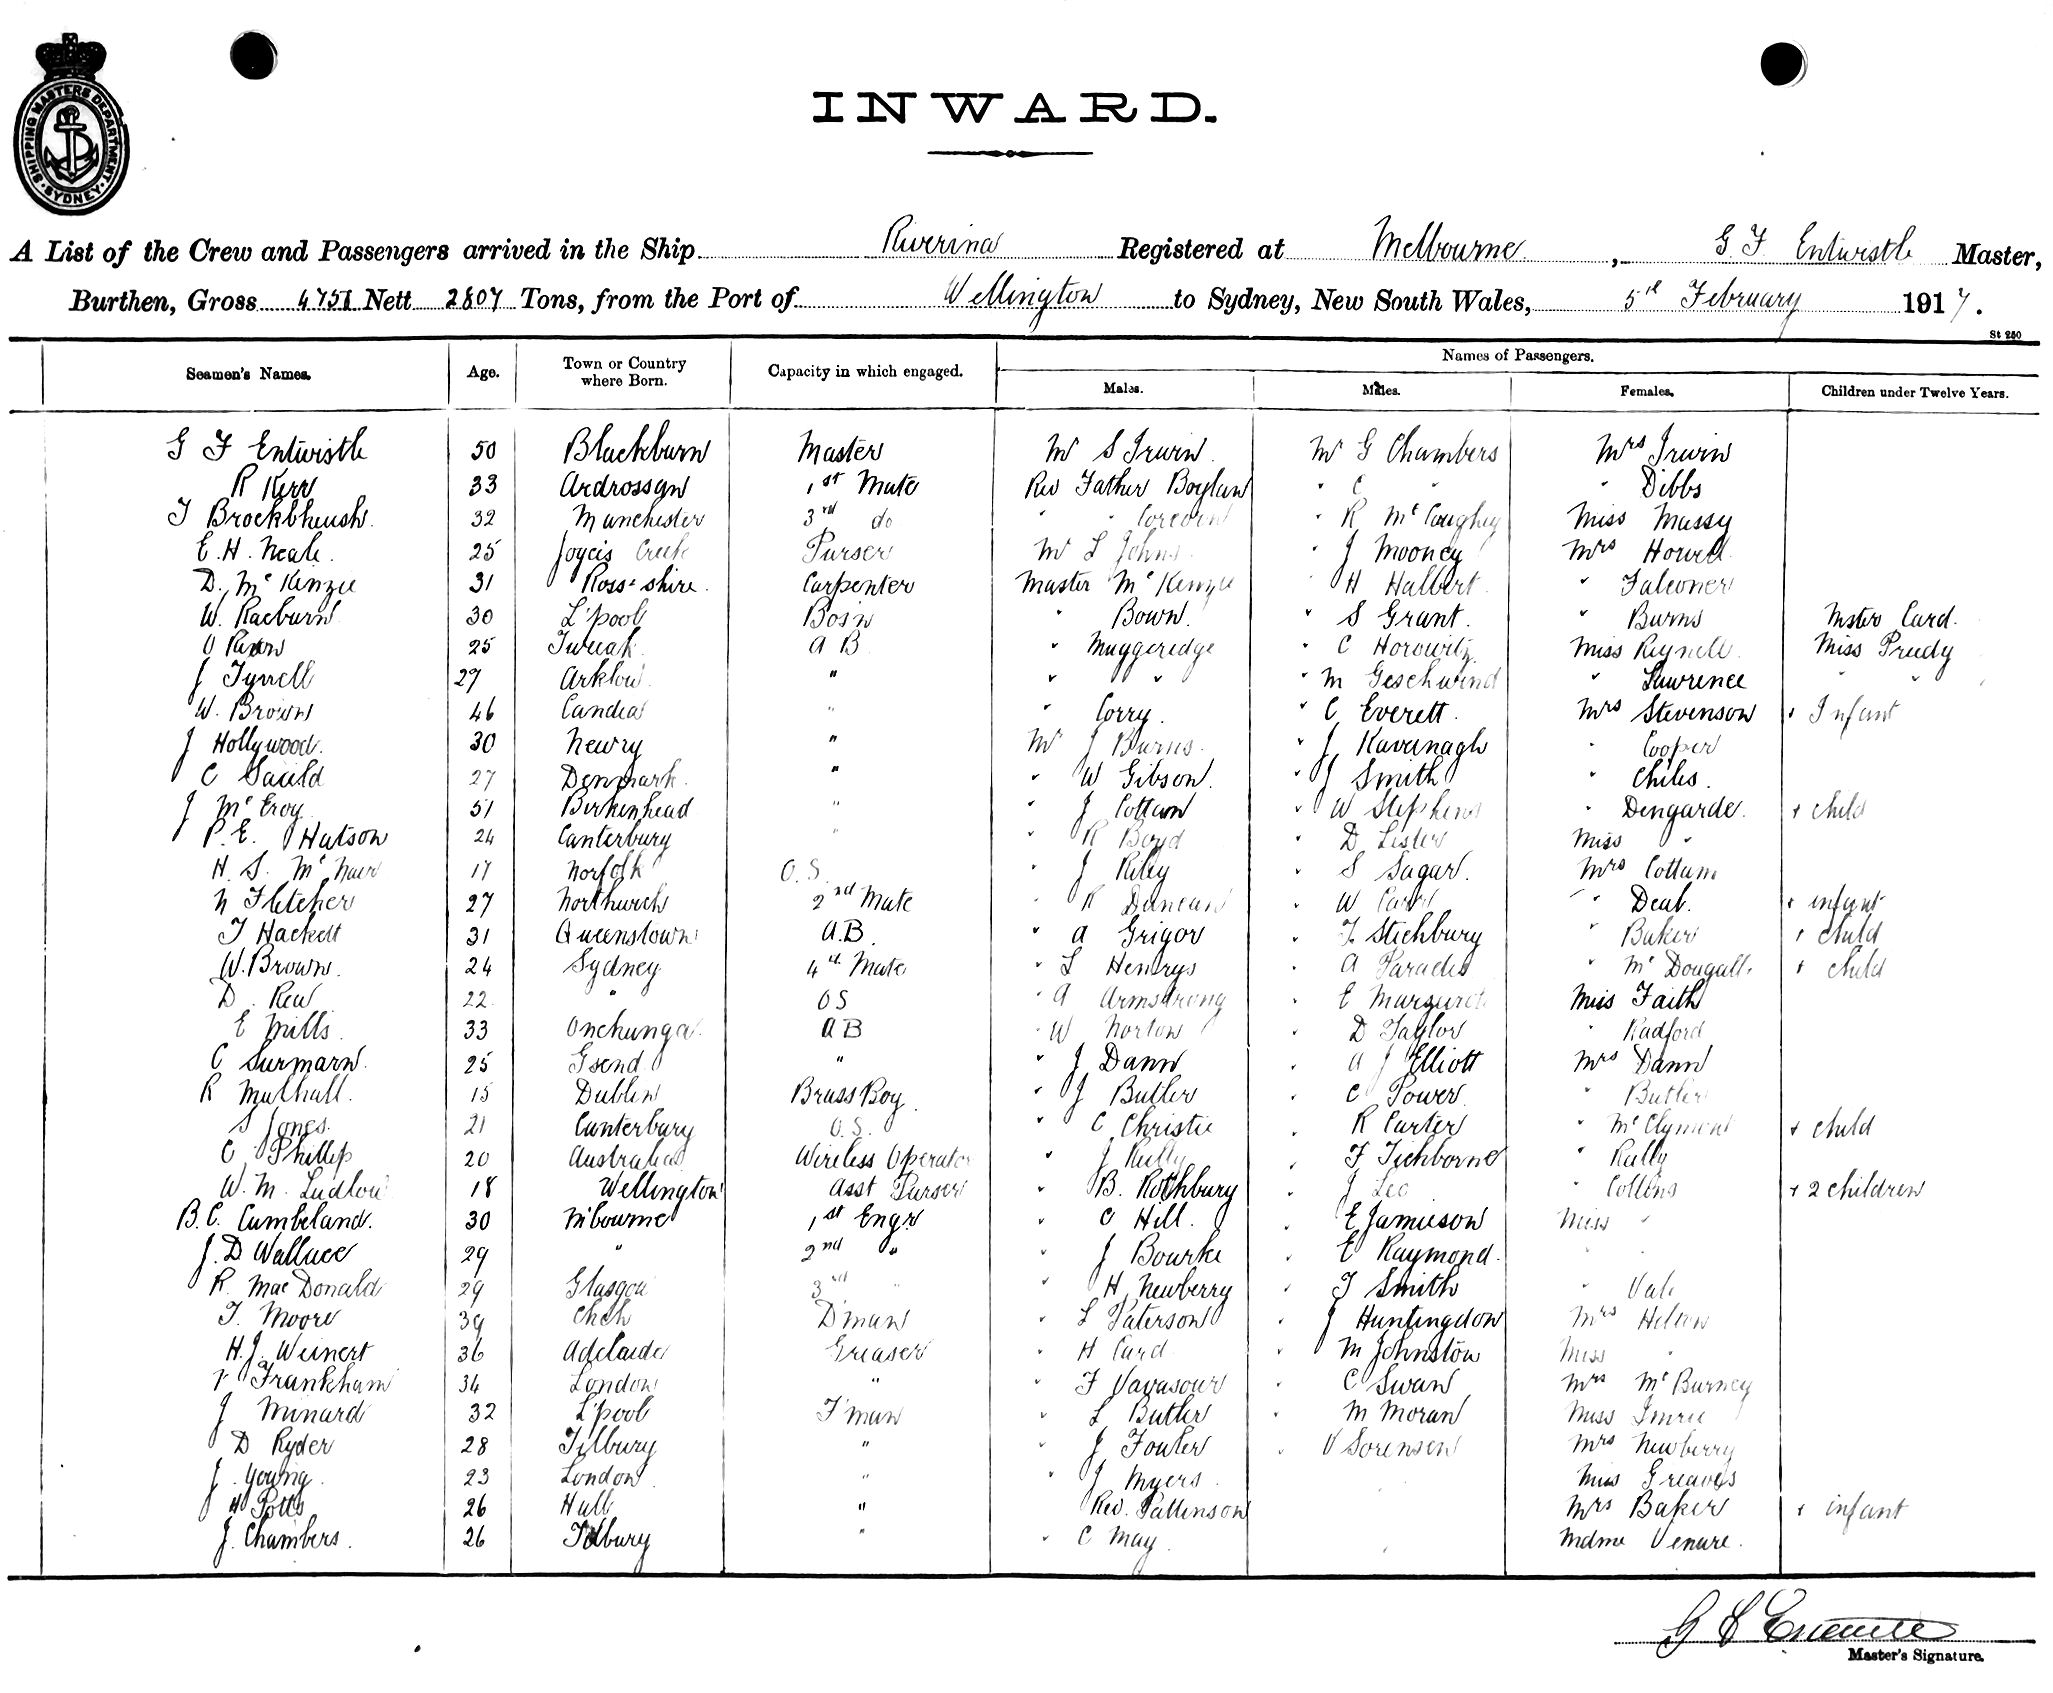 SHIPPING MASTERS DEPARTMENT. SYDNEY
INWARD.
A List of the Crew and Passengers arrived in the Ship Riverina Registered at Melbourne, G F Entwistle Master,
Burthen, Gross 4758 Nett 2807 Tons, from the Port of Wellington to Sydney, New South Wales, 5th February 1917.
St 250
Seamen's Names. Age. Town or Country where Born. Capacity in which engaged. Names of Passengers.
Males. Males. Females. Children under Twelve Years.
G F Entwistle 50 Blackburn Master Mr S Irwin. Mr G Chambers Mrs Irwin
R Kerr 33 Ardrossan 1st Mate Rev Father Boylan " C " " Dibbs
T 32 Manchester 3rd do " " " R McCaughey Miss Massy
E. H. Neale. 25 Joyces Creek Purser Mr L Johns " J Mooney Mrs Howell
D. McKenzie 31 Ross-shire. Carpenter Master McKenzie " H Halbert " Falconer
W. Raeburn 30 L'pool Bosn " Bown. " S Grant. " Burns Mster Card.
25 A B " Muggeridge " C Horowitz Miss Reynell. Miss Predy
J Tyrrell 27 Arklow. " " " " M Geschwend " Lawrence " "
W. Brown 46 Candia " " Corry. " C Everett. Mrs Stevenson + Infant
J Hollywood. 30 Newry " Mr J Burns. " J Kavanagh " Cooper
C Sauld 27 Denmark. " " W Gibson. " J Smith " Chiles.
J McEroy 51 Birkenhead " " J Cottam " W Stephens " Dengarde. + child
P. E. Hutson 24 Canterbury " " R Boyd " D Lister Miss "
H. S. McNair 17 Norfolk O.S. " J Riley " S Sagar. Mrs Cottam
N Fletcher 27 Northwich 2nd Mate " R Duncan " W Carr " Deal. + infant
T Hackett 31 Queenstown A.B. " A Grigor " F Stichbury " Baker + child
W. Brown. 24 Sydney 4th Mate " L Henrys " A Paradis " McDougall. + child
D. Rew 22 " OS " A Armstrong " E Margaret Miss Faith
E Mills. 33 Onehunga. AB " W Norton " D Taylor " Radford
C Surmarn. 25 G'send " " J Dann " A J Elliott Mrs Dann
R Mulhall. 15 Dublin Brass Boy " J Butler " C Power. " Butler
S Jones. 21 Canterbury O.S. " C Christie " R Carter " McClymont + child
C Phillip 20 Australia Wireless Operator " J Rully " F Tichborne " Rully
W. M. Ludlow 18 Wellington Asst Purser " B. Rothbury " J Lee " Collins + 2 children
B. C. Cumbeland. 30 M'bourne 1st Engr " C Hill. " E Jamieson Miss "
J. D Wallace 29 " 2nd " " J Bourke " E Raymond. " "
R. MacDonald 29 Glasgow 3rd " " H Newberry " T Smith " Vale
T. Moore 39 Chch D'man " L Paterson " J Huntingdon Mrs Helton
H. J. Weinert 36 Adelaide Greaser " H Card " M Johnston Miss "
V Frankham 34 London " " F Vavasour " C Swan Mrs McBurney
J Minard 32 L'pool F'man " L Butler " M Moran Miss Imrie
D Ryder 28 Tilbury " " J Fowler " V Sorensen Mrs Newberry
J. Young. 23 London " " J Myers Miss Greaves
H Potts 26 Hull " Rev. Pattinson Mrs Baker + infant
J. Chambers. 26 Tilbury " " C May Mdme Venure.
Master's Signature.